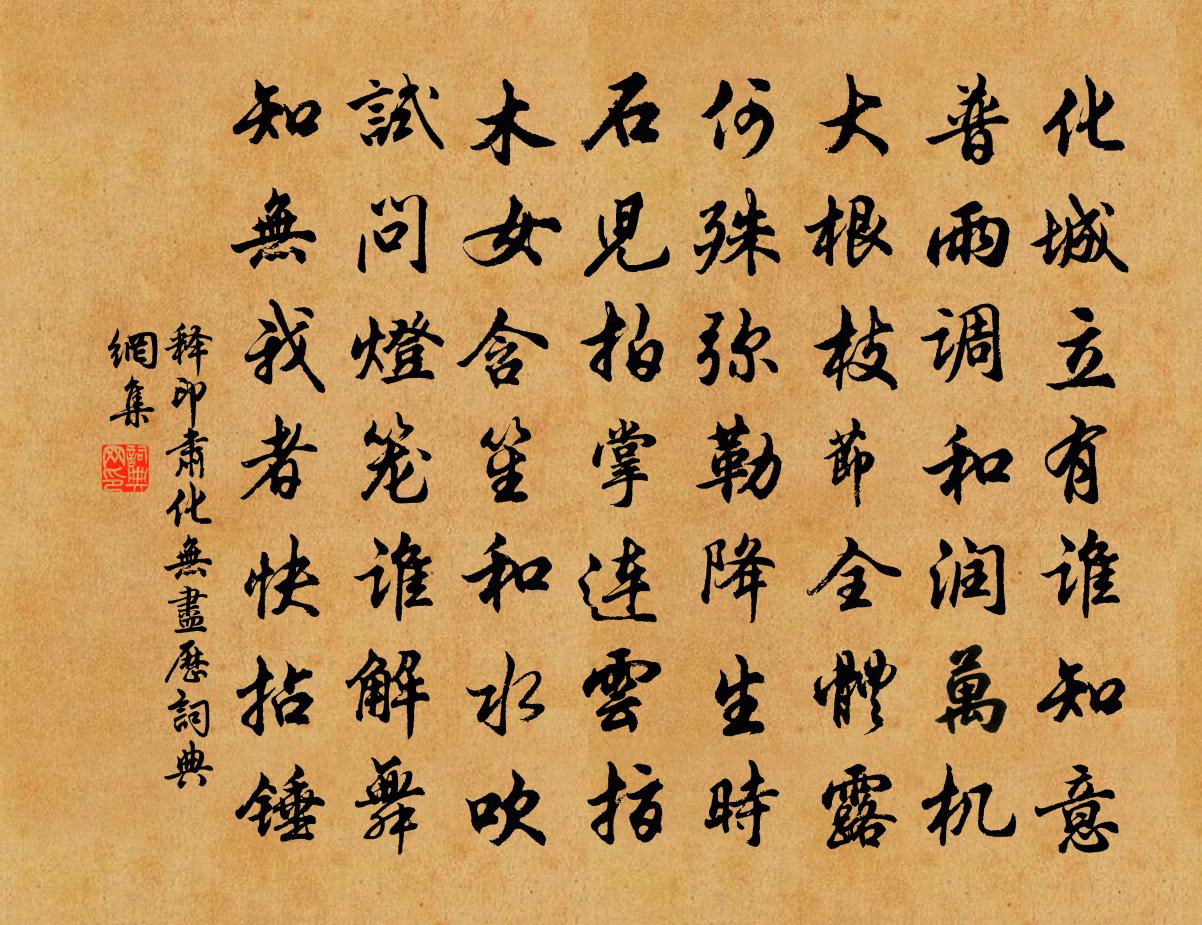 化城立有谁知意
普雨调和润萬机
大根枝節全體露
何殊弥勒降生時
石児拍掌連雲指
木女含笙和水吹
試問燈笼谁解舞
知無我者快拈锤
释印肃化無盡歷詞典
網集
詞典網印